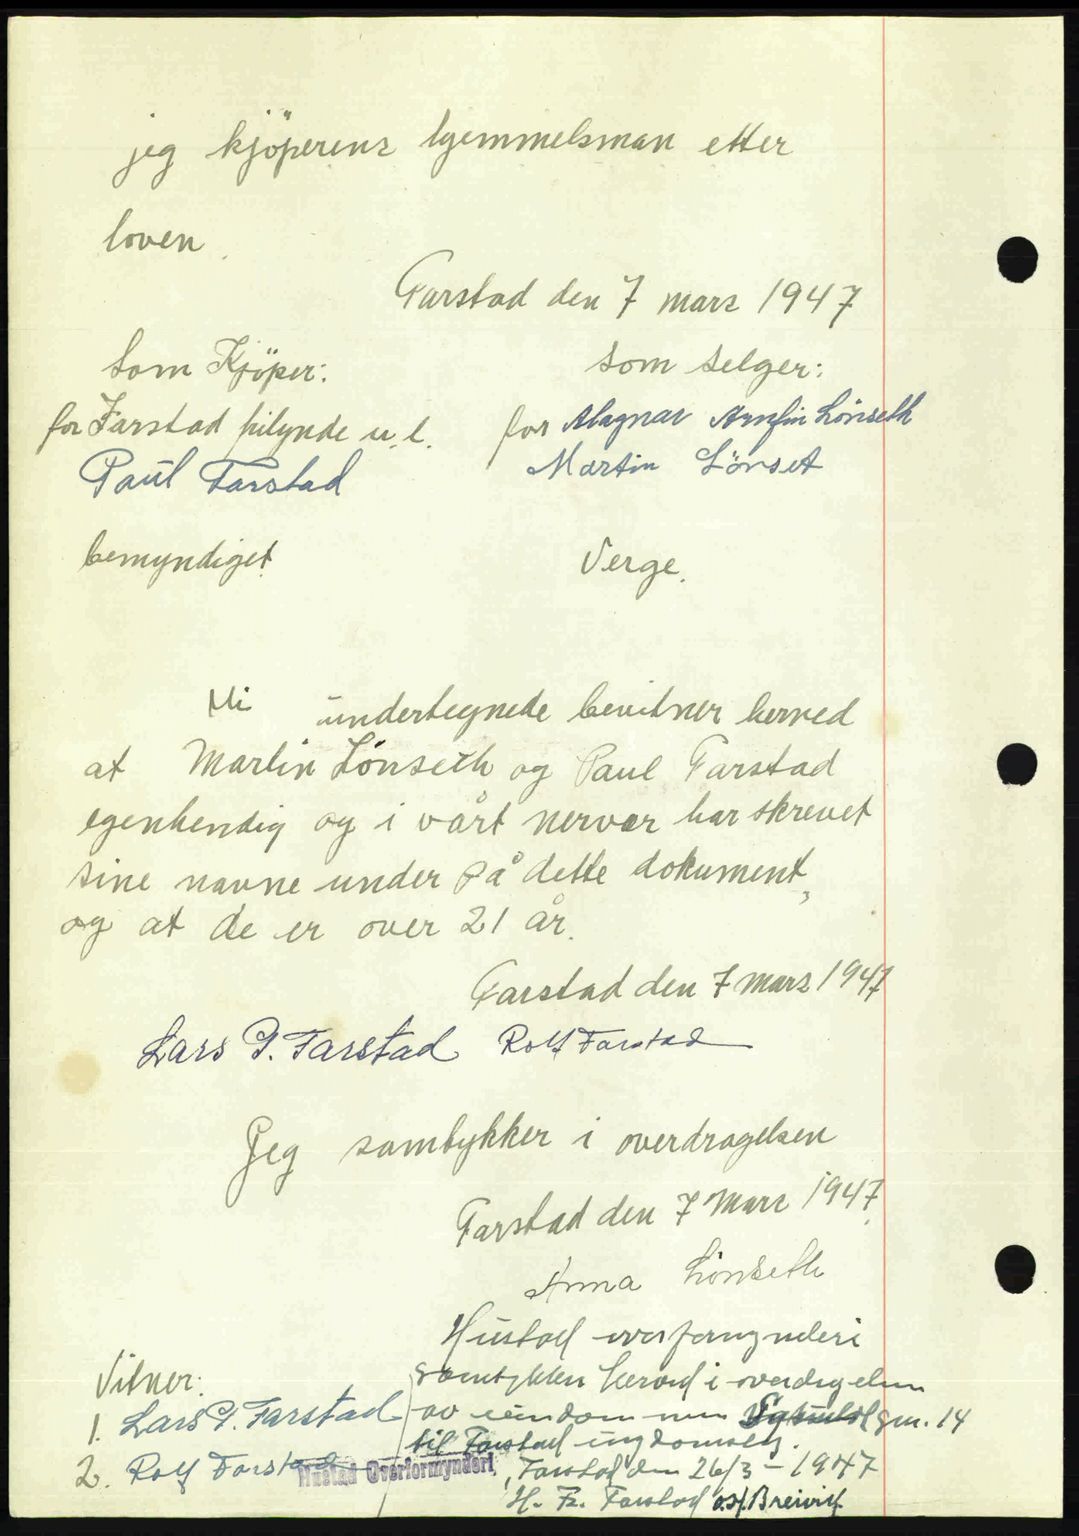 jeg kjöperens hjemmelsman etter
loven.
Farstad den 7 mars 1947
Som Kjöper:
for Farstad u.l.
Paul Farstad
bemyndiget
Som selger:
for Magnar Arnfin Lönseth
Martin Lönset
Verge.
Vi undertegnede bevitner herved
at Martin Lönseth og Paul Farstad
egenhendig og i vårt nervær har skrevet
sine navne under på dette dokument,
og at de er over 21 år.
Farstad den 7 mars 1947
Lars P. Farstad Rolf Farstad
Jeg samtykker i overdragelsen
Farstad den 7 Mars 1947
Anna Lönseth
Vitner:
1. Lars P. Farstad
2. Rolf Farstad
Hustad overformynderi
samtykker herved i overdragelsen
av eiendommen gnr. 14
til Farstad ungdomslag.
Hustad Overformynderi, Farstad den 26/3 - 1947
Farstad O.H. Breivik